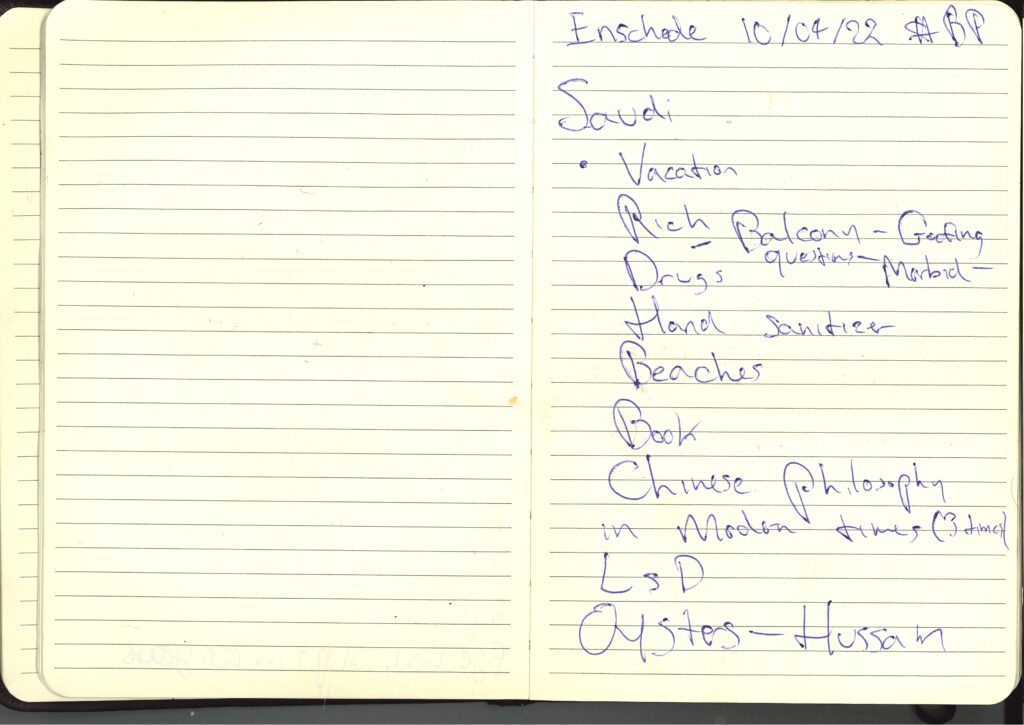 Enschede 10/04/22 #BP
Saudi
• Vacation
Rich Balcony - Goofing
Drugs questions - Morbid -
Hand sanitizer
Beaches
Book
Chinese philosophy
in Modern times (3 times)
LSD
Oysters - Hussam